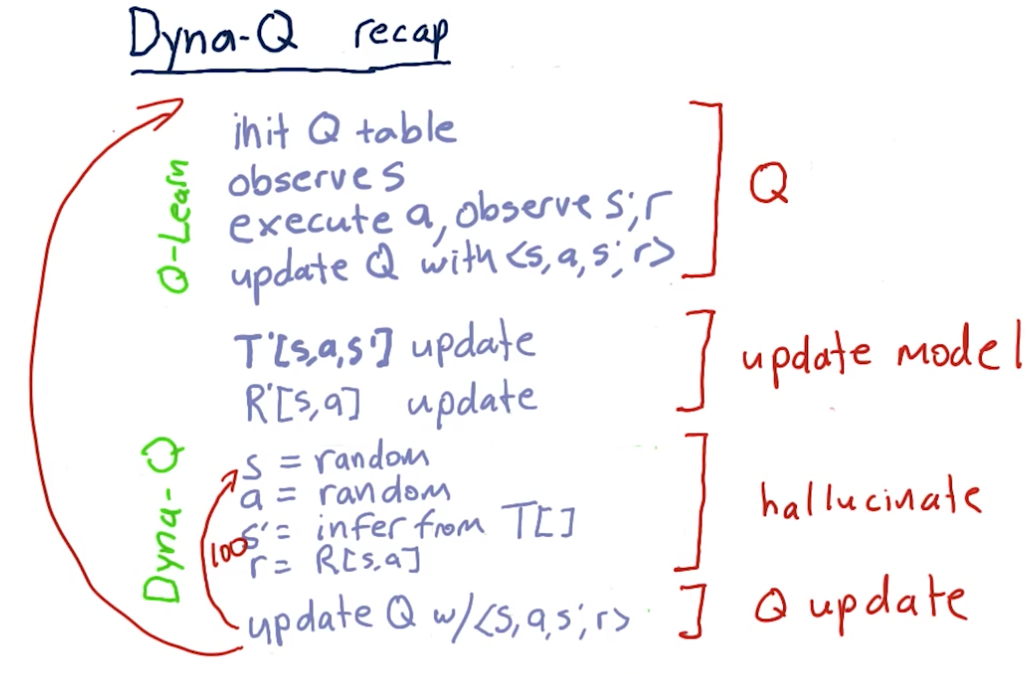 Dyna-Q recap
Q-Learn
init Q table
observe s
execute a, observe s', r
update Q with <s, a, s', r>
Q
T'[s,a,s'] update
R'[s,a] update
update model
Dyna-Q
s = random
a = random
s' = infer from T[]
r = R[s,a]
hallucinate
100
update Q w/<s, a, s', r>
Q update